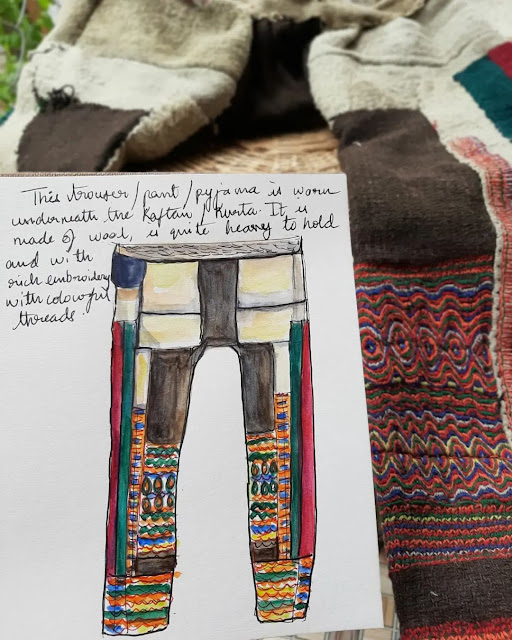 This trouser/pant/pyjama is worn
underneath the Kaftan/Kurta. It is
made of wool, is quite heavy to hold
and with
rich embroidery
with colourful
threads.